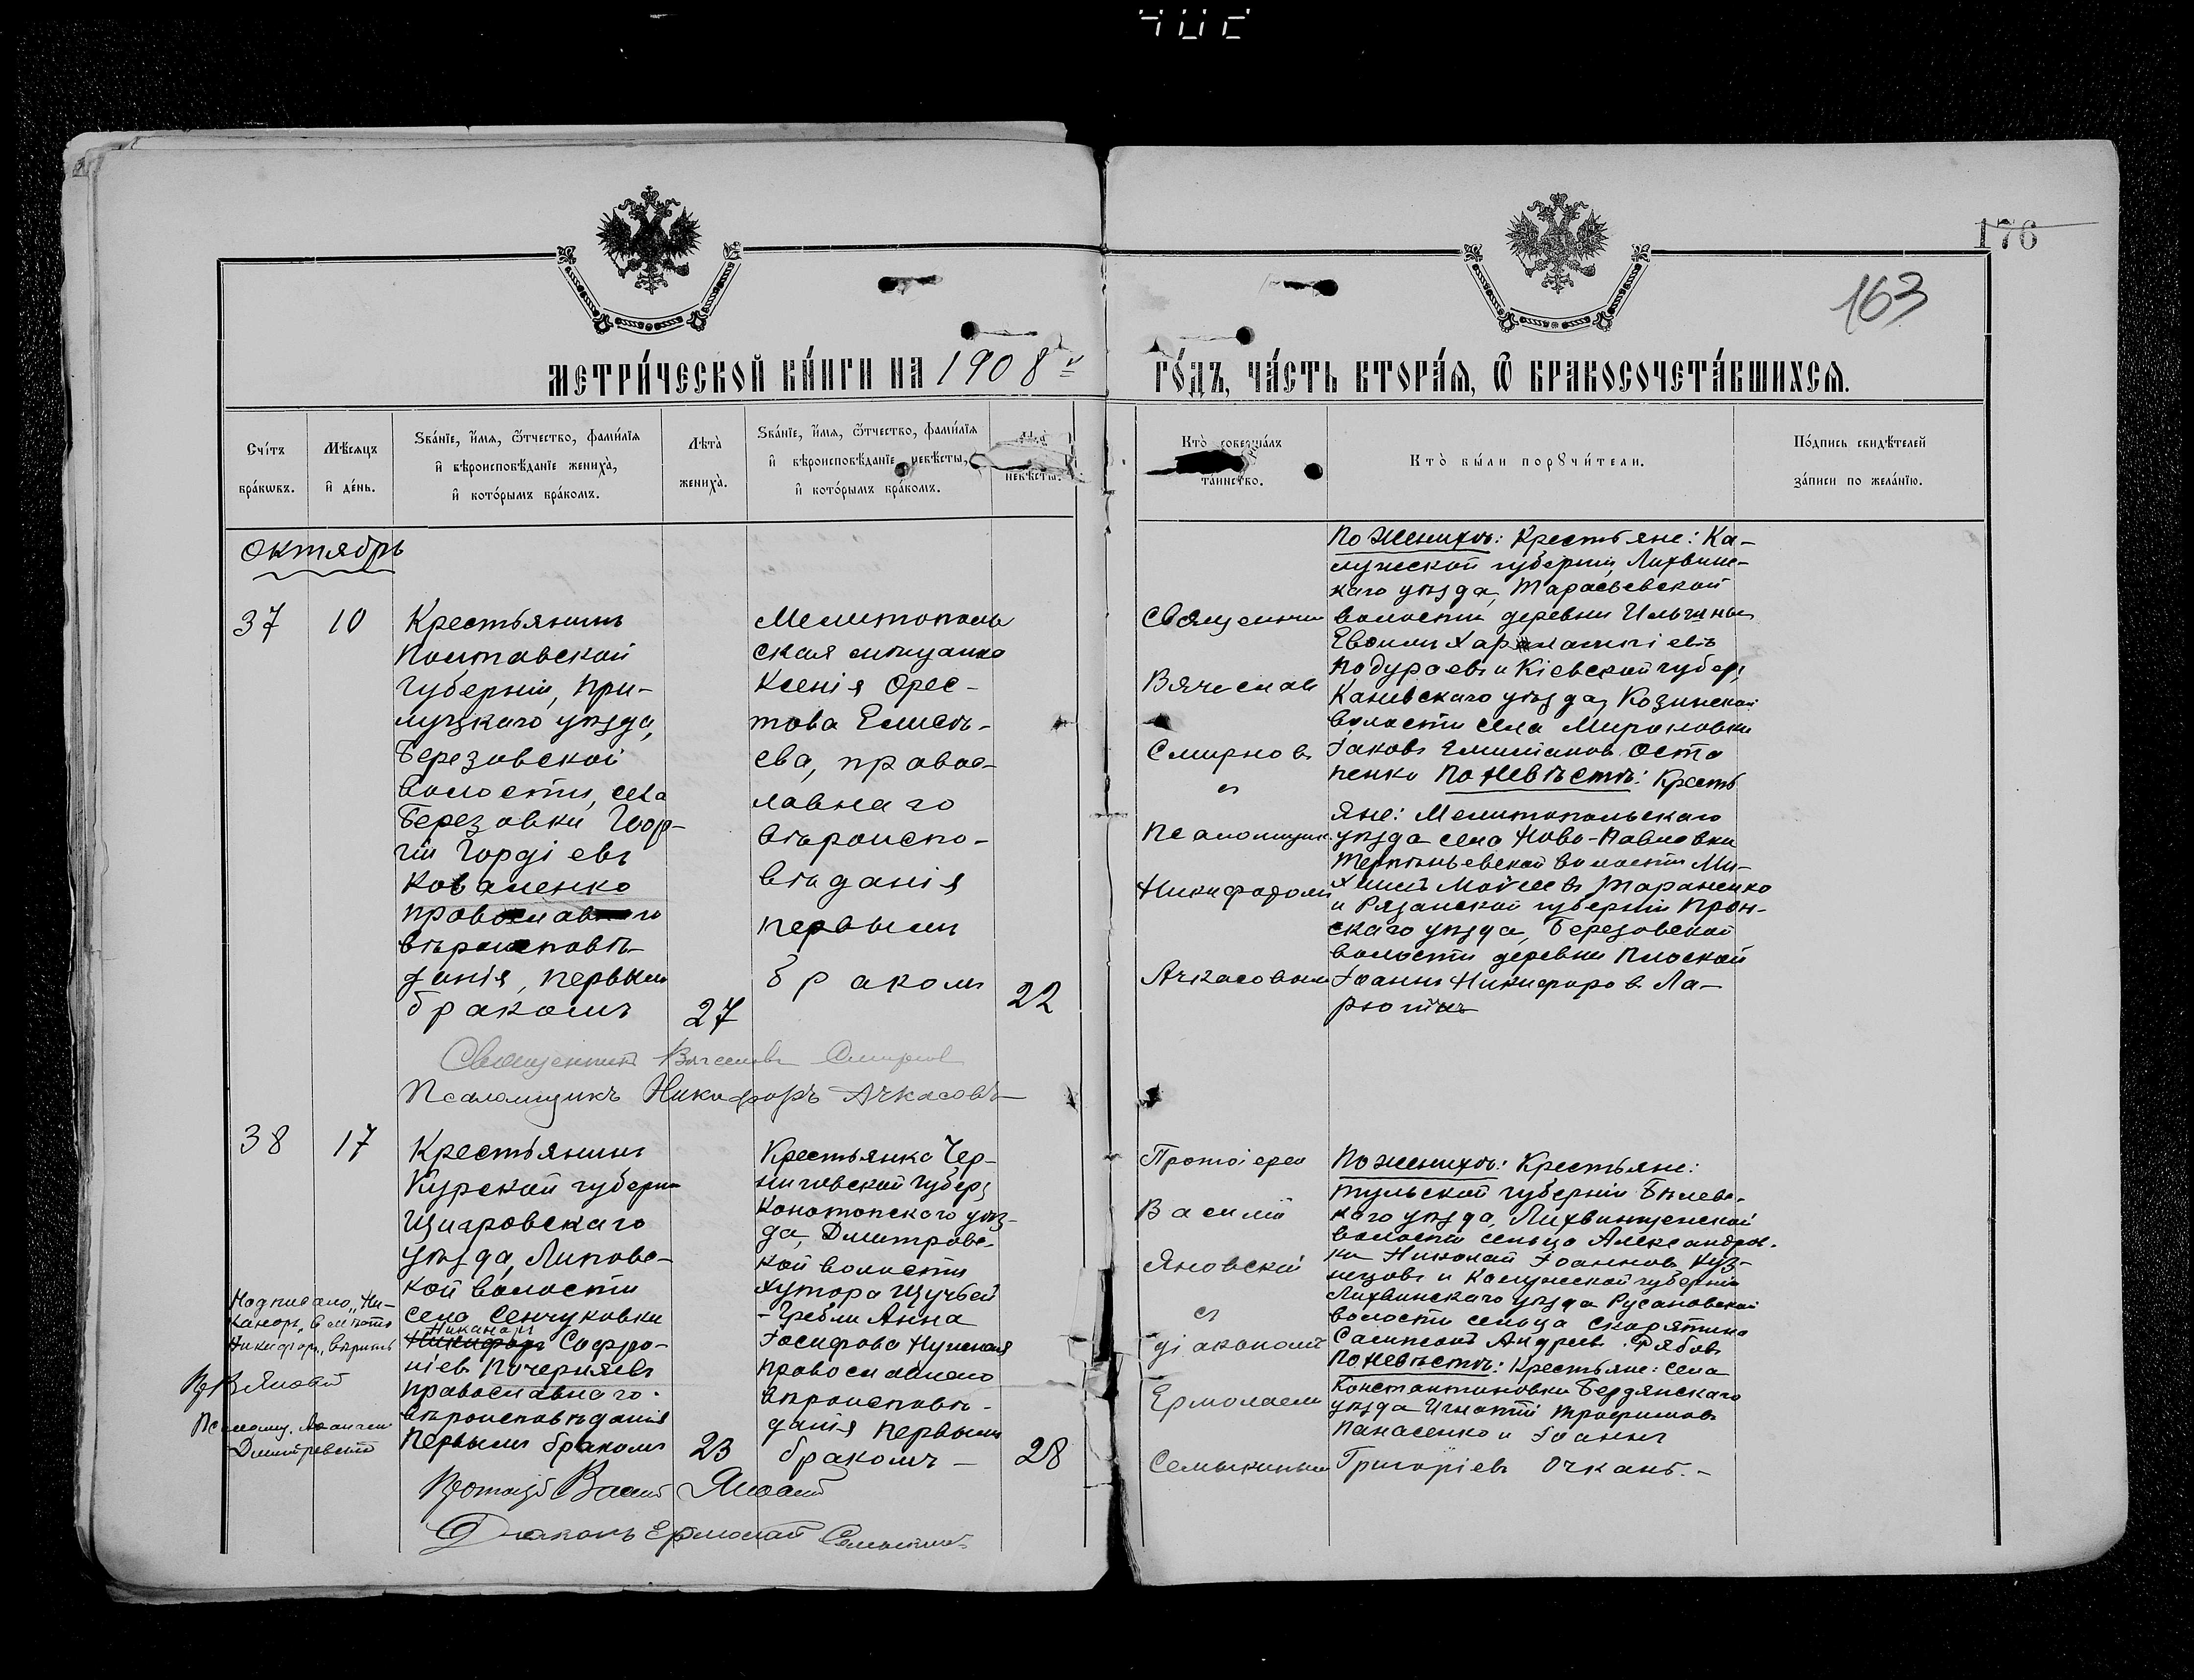 176
163
МЕТРИ́ЧЕСКОЙ КНИ́ГИ НА 1908 й
ГО́ДЪ, ЧА́СТЬ ВТОРА́Я, Ѿ БРАКОСОЧЕТА́ВШИХСЯ.
Сче́тъ
бра́кѡвъ.
Мѣ́сяцъ
и҆ де́нь.
Ѕва́нїе, и҆́мя, ѻ҆́тчество, фами́лїя
и҆ вѣроисповѣ́данїе жениха̀,
и҆ кото́рымъ бра́комъ.
Лѣта̀
жениха̀.
Ѕва́нїе, и҆́мя, ѻ҆́тчество, фами́лїя
и҆ вѣроисповѣ́данїе невѣ́сты,
и҆ кото́рымъ бра́комъ.
невѣ́сты.
Кто̀ соверша́лъ
та́инство.
Кто̀ бы́ли порꙋчи́тели.
По́дпись свидѣ́телей
за́писи по жела́нїю.
Октябрь
37
10
Крестьянинъ
Полтавской
губернiи, При-
лукскаго уѣзда,
Березовской
волости, села
Березовки Геор-
гiй Гордiевъ
Коваленко
православнаго
вѣроисповѣ-
данiя, первымъ
бракомъ
27
Мелитополь
ская мѣщанка
Ксенiя Орес-
това Елисѣ-
ева, правос-
лавнаго
вѣроиспо-
вѣданiя
первымъ
бракомъ
22
Священникъ
Вячеславъ
Смирновъ
съ
Псаломщик.
Никифоромъ
Ачкасовымъ
По женихѣ: Крестьяне: Ка-
лужской губернiи, Лихвинс-
каго уѣзда, Тарасьевской
волости деревни Ильины
Евѳимъ Харлампiевъ
Подураевъ и Кiевской губер,
Каневскаго уѣзда, Козинской
волости села Мироновки
Iаковъ Емилiановъ Оста
пенко По невѣстѣ: Кресть
яне: Мелитопольскаго
уѣзда села Ново-Павловки
Терпѣньевской волости Ми-
хаилъ Моѵсеевъ Тараненко
и Рязанской губернiи Прон-
скаго уѣзда, Березовской
волости деревни Плоской
Iоаннъ Никифоровъ Ла-
рютинъ
Священникъ Вячеславъ Смирнов
Псаломщикъ Никифоръ Ачкасовъ
38
17
Крестьянинъ
Курской губерн
Щигровскаго
уѣзда, Липовс-
кой волости
села Сенчуковки
Никаноръ
Никифоръ Софро-
нiевъ Почерняевъ
православнаго
вѣроисповѣданiя
первымъ бракомъ
23
Крестьянка Чер-
ниговской губер,
Конотопскаго уѣз-
да, Дмитровс-
кой волости
хутора Щучьей
-Гребли Анна
Iосифова Нужная
православнаго
вѣроисповѣ-
данiя первымъ
бракомъ -
28
Надписано „Ни-
каноръ" вмѣсто
Никифоръ„ вѣрить
Псаломщ.
Дмитревскiй
Протоiерей
Василiй
Яновскiй
съ
дiакономъ
Ермолаемъ
Семыкинымъ
По женихѣ: Крестьяне:
Тульской губернiи Бѣлевс-
каго уѣзда,
волости сельца Александров-
ки Николай Iоанновъ Куз-
нецовъ и Калужской губернiи
Лихвинскаго уѣзда Русановской
волости сельца Скорятина
Сампсонъ Андреевъ Рябовъ
По невѣстѣ: Крестьяне: села
Константиновки Бердянскаго
уѣзда Игнатiй Трофимовъ
Панасенко и Iоаннъ
Григорiевъ Очкань. -
Протоiер Васил Яновскiй
Дiаконъ Ермолай Семыкинъ